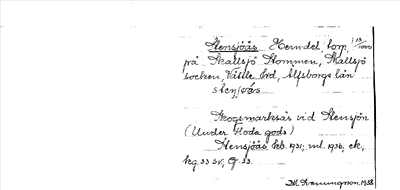 Stensjöås Hemdel, tom, 13/1000
på Skallsjö Stommen, Skallsjö
socken, Vättle hd, Älfsborgs län
sten ås
Skogsmarksås vid Stensjön
(Under Floda gods)
Stensjöås kb. 1931; uml. 1936, ek,
kg. 33 SV, G. 33.
1938